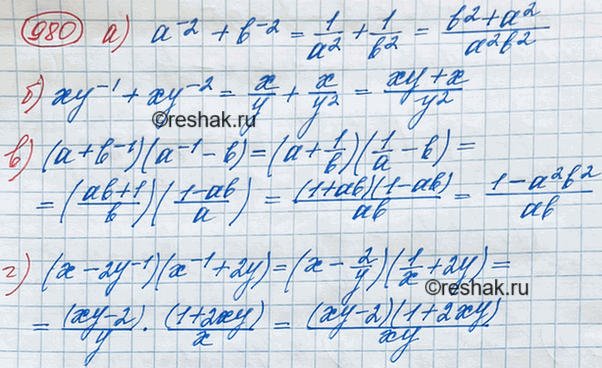 980 а) a⁻² + b⁻² = 1/a² + 1/b² = (b² + a²)/(a²b²)
б) xy⁻¹ + xy⁻² = x/y + x/y² = (xy + x)/y²
©reshak.ru
в) (a + b⁻¹)(a⁻¹ − b) = (a + 1/b)(1/a − b) =
= ((ab+1)/b)((1−ab)/a) = ((1+ab)(1−ab))/(ab) = (1 − a²b²)/(ab)
г) (x − 2y⁻¹)(x⁻¹ + 2y) = (x − 2/y)(1/x + 2y) =
= (xy−2)/y · (1+2xy)/x = ((xy−2)(1+2xy))/(xy)
©reshak.ru